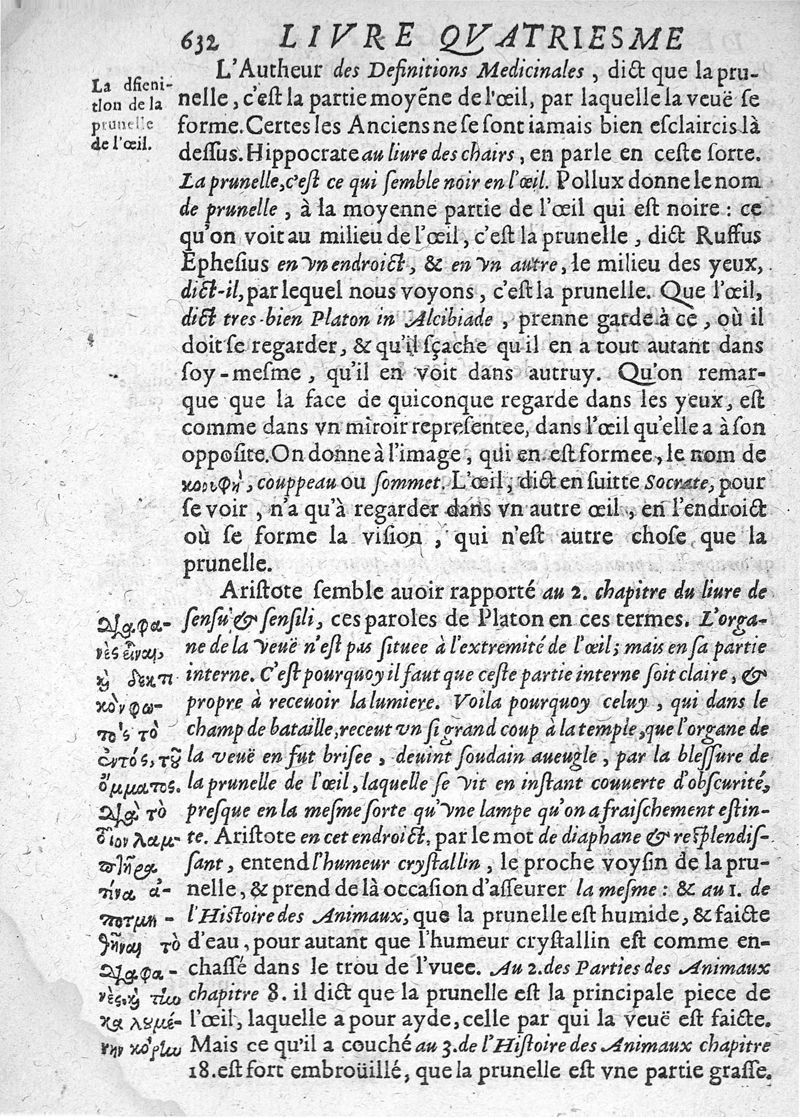 632 LIVRE QVATRIESME
La dfieni-
tion de la
prunelle
de l'œil.
L'Autheur des Definitions Medicinales, dict que la pru-
nelle, c'eſt la partie moyẽne de l'œil, par laquelle la veuë ſe
forme. Certes les Anciens ne ſe ſont iamais bien eſclaircis là
deſſus. Hippocrate au liure des chairs, en parle en ceſte ſorte.
La prunelle, c'eſt ce qui ſemble noir en l'œil. Pollux donne le nom
de prunelle, à la moyenne partie de l'œil qui eſt noire: ce
qu'on voit au milieu de l'œil, c'eſt la prunelle, dict Ruffus
Epheſius en vn endroict, & en vn autre, le milieu des yeux,
dict-il, par lequel nous voyons, c'eſt la prunelle. Que l'œil,
dict tres-bien Platon in Alcibiade, prenne garde à ce, où il
doit ſe regarder, & qu'il ſçache qu'il en a tout autant dans
ſoy-meſme, qu'il en voit dans autruy. Qu'on remar-
que que la face de quiconque regarde dans les yeux, eſt
comme dans vn miroir repreſentee, dans l'œil qu'elle a à ſon
oppoſite. On donne à l'image, qui en eſt formee, le nom de
κορυφὴ, couppeau ou ſommet. L'œil, dict en ſuitte Socrate, pour
ſe voir, n'a qu'à regarder dans vn autre œil, en l'endroict
où ſe forme la viſion, qui n'eſt autre choſe que la
prunelle.
Ariſtote ſemble auoir rapporté au 2. chapitre du liure de
ſenſu & ſenſili, ces paroles de Platon en ces termes. L'orga-
ne de la veuë n'eſt pas ſituee à l'extremité de l'œil; mais en ſa partie
interne. C'eſt pourquoy il faut que ceſte partie interne ſoit claire, &
propre à receuoir la lumiere. Voila pourquoy celuy, qui dans le
champ de bataille, receut vn ſi grand coup à la temple, que l'organe de
la veuë en fut briſee, deuint ſoudain aueugle, par la bleſſure de
la prunelle de l'œil, laquelle ſe vit en inſtant couuerte d'obſcurité,
preſque en la meſme ſorte qu'vne lampe qu'on a fraiſchement eſtin-
te. Ariſtote en cet endroict, par le mot de diaphane & reſplendiſ-
ſant, entend l'humeur cryſtallin, le proche voyſin de la pru-
nelle, & prend de là occaſion d'aſſeurer la meſme: & au 1. de
l'Hiſtoire des Animaux, que la prunelle eſt humide, & faicte
d'eau, pour autant que l'humeur cryſtallin eſt comme en-
chaſſé dans le trou de l'vuee. Au 2. des Parties des Animaux
chapitre 8. il dict que la prunelle eſt la principale piece de
l'œil, laquelle a pour ayde, celle par qui la veuë eſt faicte.
Mais ce qu'il a couché au 3. de l'Hiſtoire des Animaux chapitre
18. eſt fort embroüillé, que la prunelle eſt vne partie graſſe.
διαφα-
νὲς εἶναι,
καὶ δεκτι
κὸν φω-
τὸς τὸ
ἐντός, τοῦ
ὄμματος.
διὰ τὸ
οἷον λαμ-
πτῆρα
τινα ἀ-
ποτμη-
θῆναι τὸ
διαφα-
νὲς, καὶ τὴν
καλουμέ-
νην κόρην